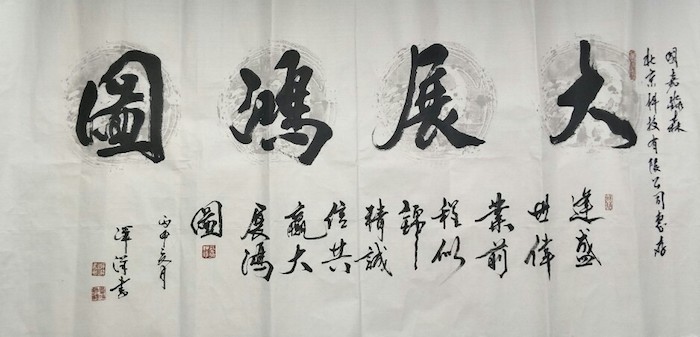 明嘉森
北京科技有限公司惠存
大展鴻圖
逢盛
世偉
業前
程似
錦
精誠
信共
贏大
展鴻
圖
丙申月
書